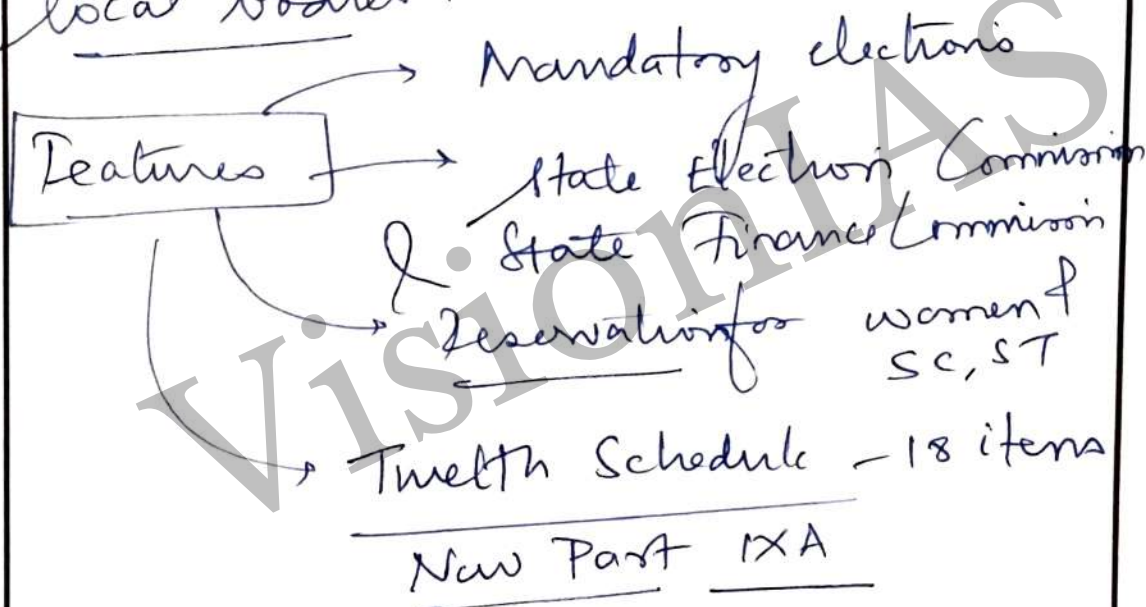 local
Mandatory elections
Features
State Election Commission
& State Finance Commission
Reservation for women &
SC, ST
Twelth Schedule - 18 items
New Part IXA
VisionIAS